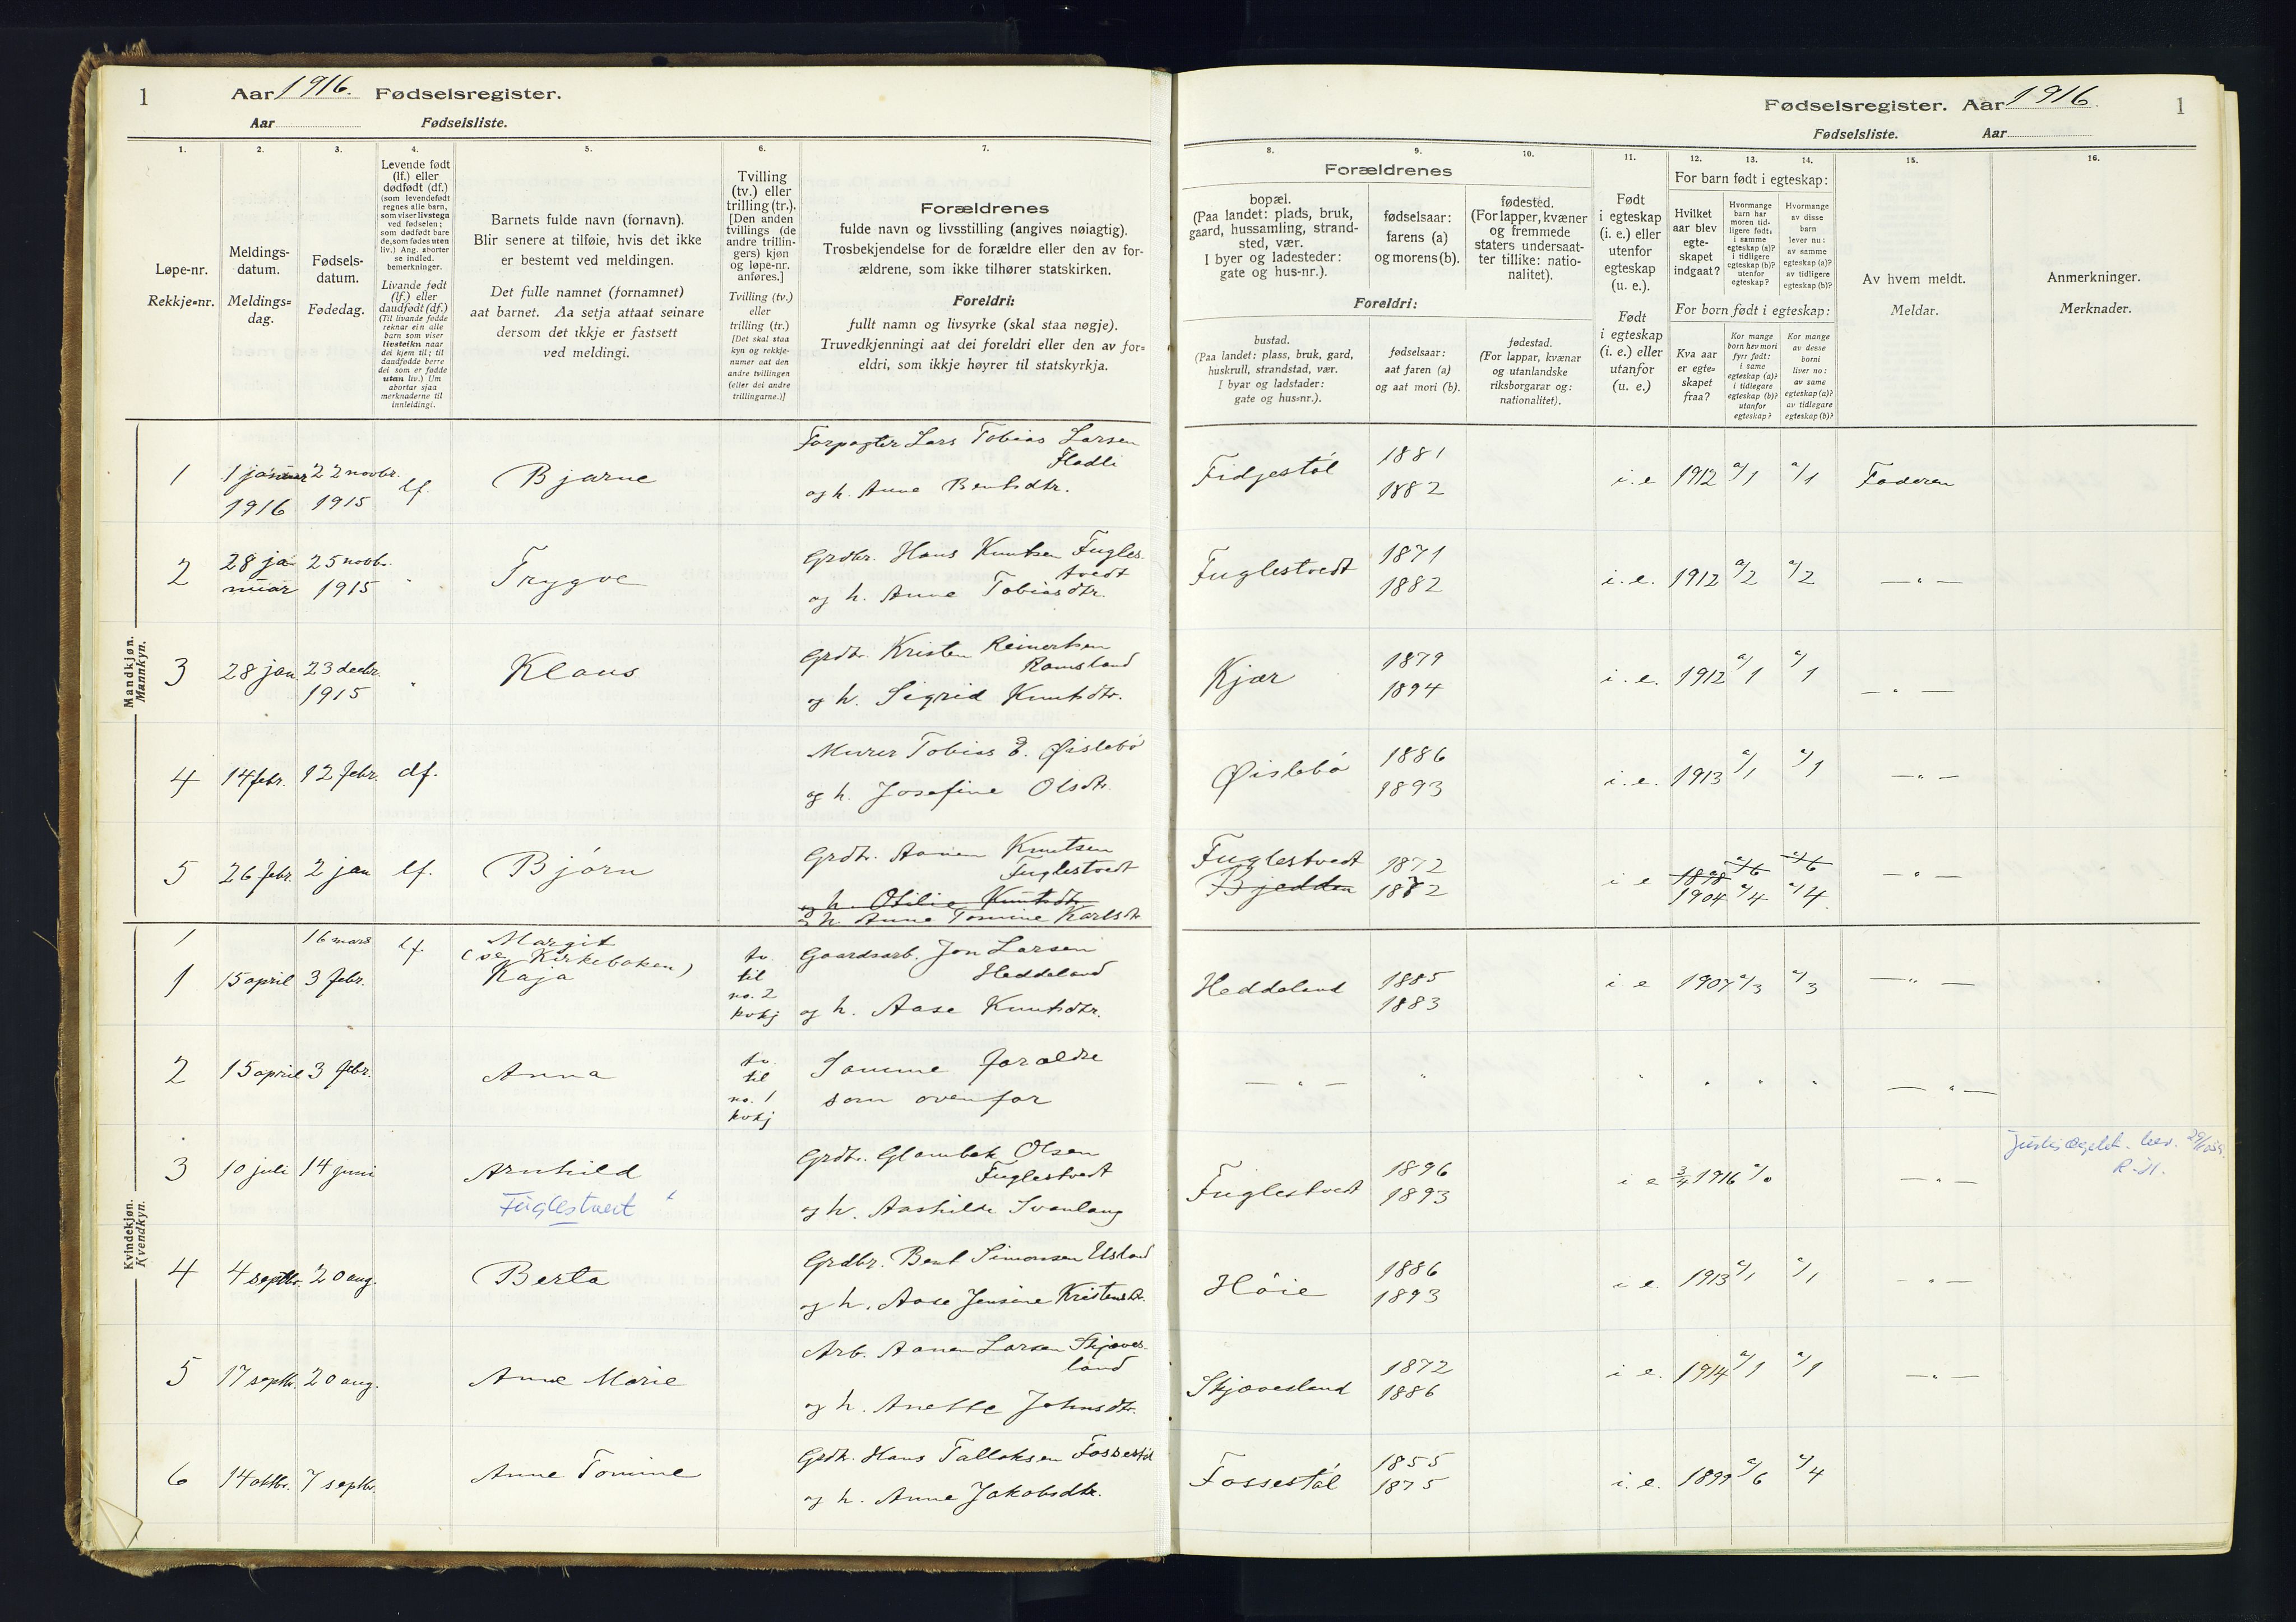 1 Aar 1916. Fødselsregister.
Aar Fødselsliste.
Fødselsregister. Aar 1916. 1
Fødselsliste. Aar
1. 2. 3. 4. 5. 6. 7.
Løpe-nr.
Rekkje=nr.
Meldings-
datum.
Meldings=
dag.
Fødsels-
datum.
Fødedag.
Levende født
(lf.) eller
dødfødt (df.)
(som levendefødt
regnes alle barn,
som viser livstegn
ved fødselen;
som dødfødt bare
de, som fødes uten
liv.) Ang. aborter
se indled.
bemerkninger.
Livande født
(lf.) eller
daudfødt (df.)
(Til livande fødde
reknar ein alle
barn som viser
livsteikn naar
dei kjem til; til
daudfødde berre
dei som er fødde
utan liv.) Um
abortar sjaa
merknaderne til
innleidingi.
Barnets fulde navn (fornavn).
Blir senere at tilføie, hvis det ikke
er bestemt ved meldingen.
Det fulle namnet (fornamnet)
aat barnet. Aa setja attaat seinare
dersom det ikkje er fastsett
ved meldingi.
Tvilling
(tv.) eller
trilling (tr.).
[Den anden
tvillings (de
andre trillin-
gers) kjøn
og løpe-nr.
anføres.]
Tvilling (tv.)
eller
trilling (tr.)
[Det skal staa
kyn og rekkje-
numer aat den
andre tvillingen
(eller dei andre
trillingarne.)]
Forældrenes
fulde navn og livsstilling (angives nøiagtig).
Trosbekjendelse for de forældre eller den av for-
ældrene, som ikke tilhører statskirken.
Foreldri:
fullt namn og livsyrke (skal staa nøgje).
Truvedkjenningi aat dei foreldri eller den av for=
eldri, som ikkje høyrer til statskyrkja.
8. 9. 10. 11. 12. 13. 14. 15. 16.
Forældrenes
bopæl.
(Paa landet: plads, bruk,
gaard, hussamling, strand-
sted, vær.
I byer og ladesteder:
gate og hus-nr.).
fødselsaar:
farens (a)
og morens (b).
fødested.
(For lapper, kvæner
og fremmede
staters undersaat-
ter tillike: natio-
nalitet).
Foreldri:
bustad.
(Paa landet: plass, bruk, gard,
huskrull, strandstad, vær.
I byar og ladstader:
gate og hus=nr.).
fødselsaar:
aat faren (a)
og aat mori (b).
fødestad.
(For lappar, kvænar
og utanlandske
riksborgarar og:
nationalitet).
Født
i egteskap
(i. e.) eller
utenfor
egteskap
(u. e.).
Født
i egteskap
(i. e.) eller
utanfor
(u. e.)
For barn født i egteskap:
Hvilket
aar blev
egte-
skapet
indgaat?
Hvormange
barn har
moren tid-
ligere født:
i samme
egteskap (a)?
i tidligere
egteskap (b)?
utenfor
egteskap?
Hvormange
av disse
barn
lever nu:
av samme
egteskap (a)?
av tidligere
egteskap (b)?
For born født i egteskap:
Kva aar
er egte-
skapet
fraa?
Kor mange
born hev mori
fyrr født:
i same
egteskap (a)?
i tidlegare
egteskap (b)?
utanfor
egteskap?
Kor mange
av desse
borni
liver no:
av same
egteskap (a)?
av tidlegare
egteskap (b)?
Av hvem meldt.
Meldar.
Anmerkninger.
Merknader.
Mandkjøn.
Mannkyn.
1 1 januar 1916 22 novbr. 1915 lf. Bjarne
Forpagter Lars Tobias Larsen
Fladli
og h. Anne Bentsdtr.
Fidjestøl 1881 1882 i. e 1912 a/1 a/1 Faderen
2 28 januar 25 novbr. 1915 " Trygve
Grdbr. Hans Knutsen Fugles-
tvedt
og h. Anne Tobiasdtr.
Fuglestvedt 1871 1882 i. e. 1912 a/2 a/2 — " —
3 28 jan. 23 decbr. 1915 " Klaus
Grdbr. Kristen Reinertsen
Ramsland
og h. Sigrid Knutsdtr.
Kjær 1879 1894 i. e. 1912 a/1 a/1 — " —
4 14 febr. 12 febr. df.
Murer Tobias E. Øislebø
og h. Josefine Olsdtr.
Øislebø 1886 1893 i. e. 1913 a/1 a/1 — " —
5 26 febr. 2 jan lf. Bjørn
Grdbr. Aanen Knutsen
Fuglestvedt
og h. Otilie Knutsdtr
og h. Anne Tomine Karlsdtr
Fuglestvedt 1872
Bjedden 1872
i e 1898 a/6 a/6
1904 a/4 a/4 — " —
Kvindekjøn.
Kvendkyn.
1 16 mars lf. Margit
(se Kirkeboken)
1 15 april 3 febr. Kaja
tv. til no. 2 kvkj
Gaardsarb. Jon Larsen
Heddeland
og h. Aase Knutsdtr.
Heddeland 1885 1883 i e 1907 a/3 a/3 — " —
2 15 april 3 febr. Anna
tv. til no. 1 kvkj
Samme forældre
som ovenfor
— " — " " " " " — " —
3 10 juli 14 juni Arnhild
Fuglestveit
Grdbr. Glambek Olsen
Fuglestvedt
og h. Aashilde Svanlaug
Fuglestvedt 1896 1893 i e 3/4 1916 a/0 — " —
R. H.
4 4 septbr. 20 aug. Berta
Grdbr. Bent Simonsen Usland
og h. Aase Jensine Kristensdtr.
Høie 1886 1893 i e. 1913 a/1 a/1 — " —
5 17 septbr. 20 aug. Anne Marie
Arb. Aanen Larsen Skjæves-
land
og h. Anette Johnsdtr.
Skjævesland 1872 1886 i e. 1914 a/1 a/1 — " —
6 14 oktbr. 7 septbr. Anne Tomine
Grdbr. Hans Tallaksen Fossestøl
og h. Anne Jakobsdtr.
Fossestøl 1855 1875 i. e. 1899 a/6 a/4